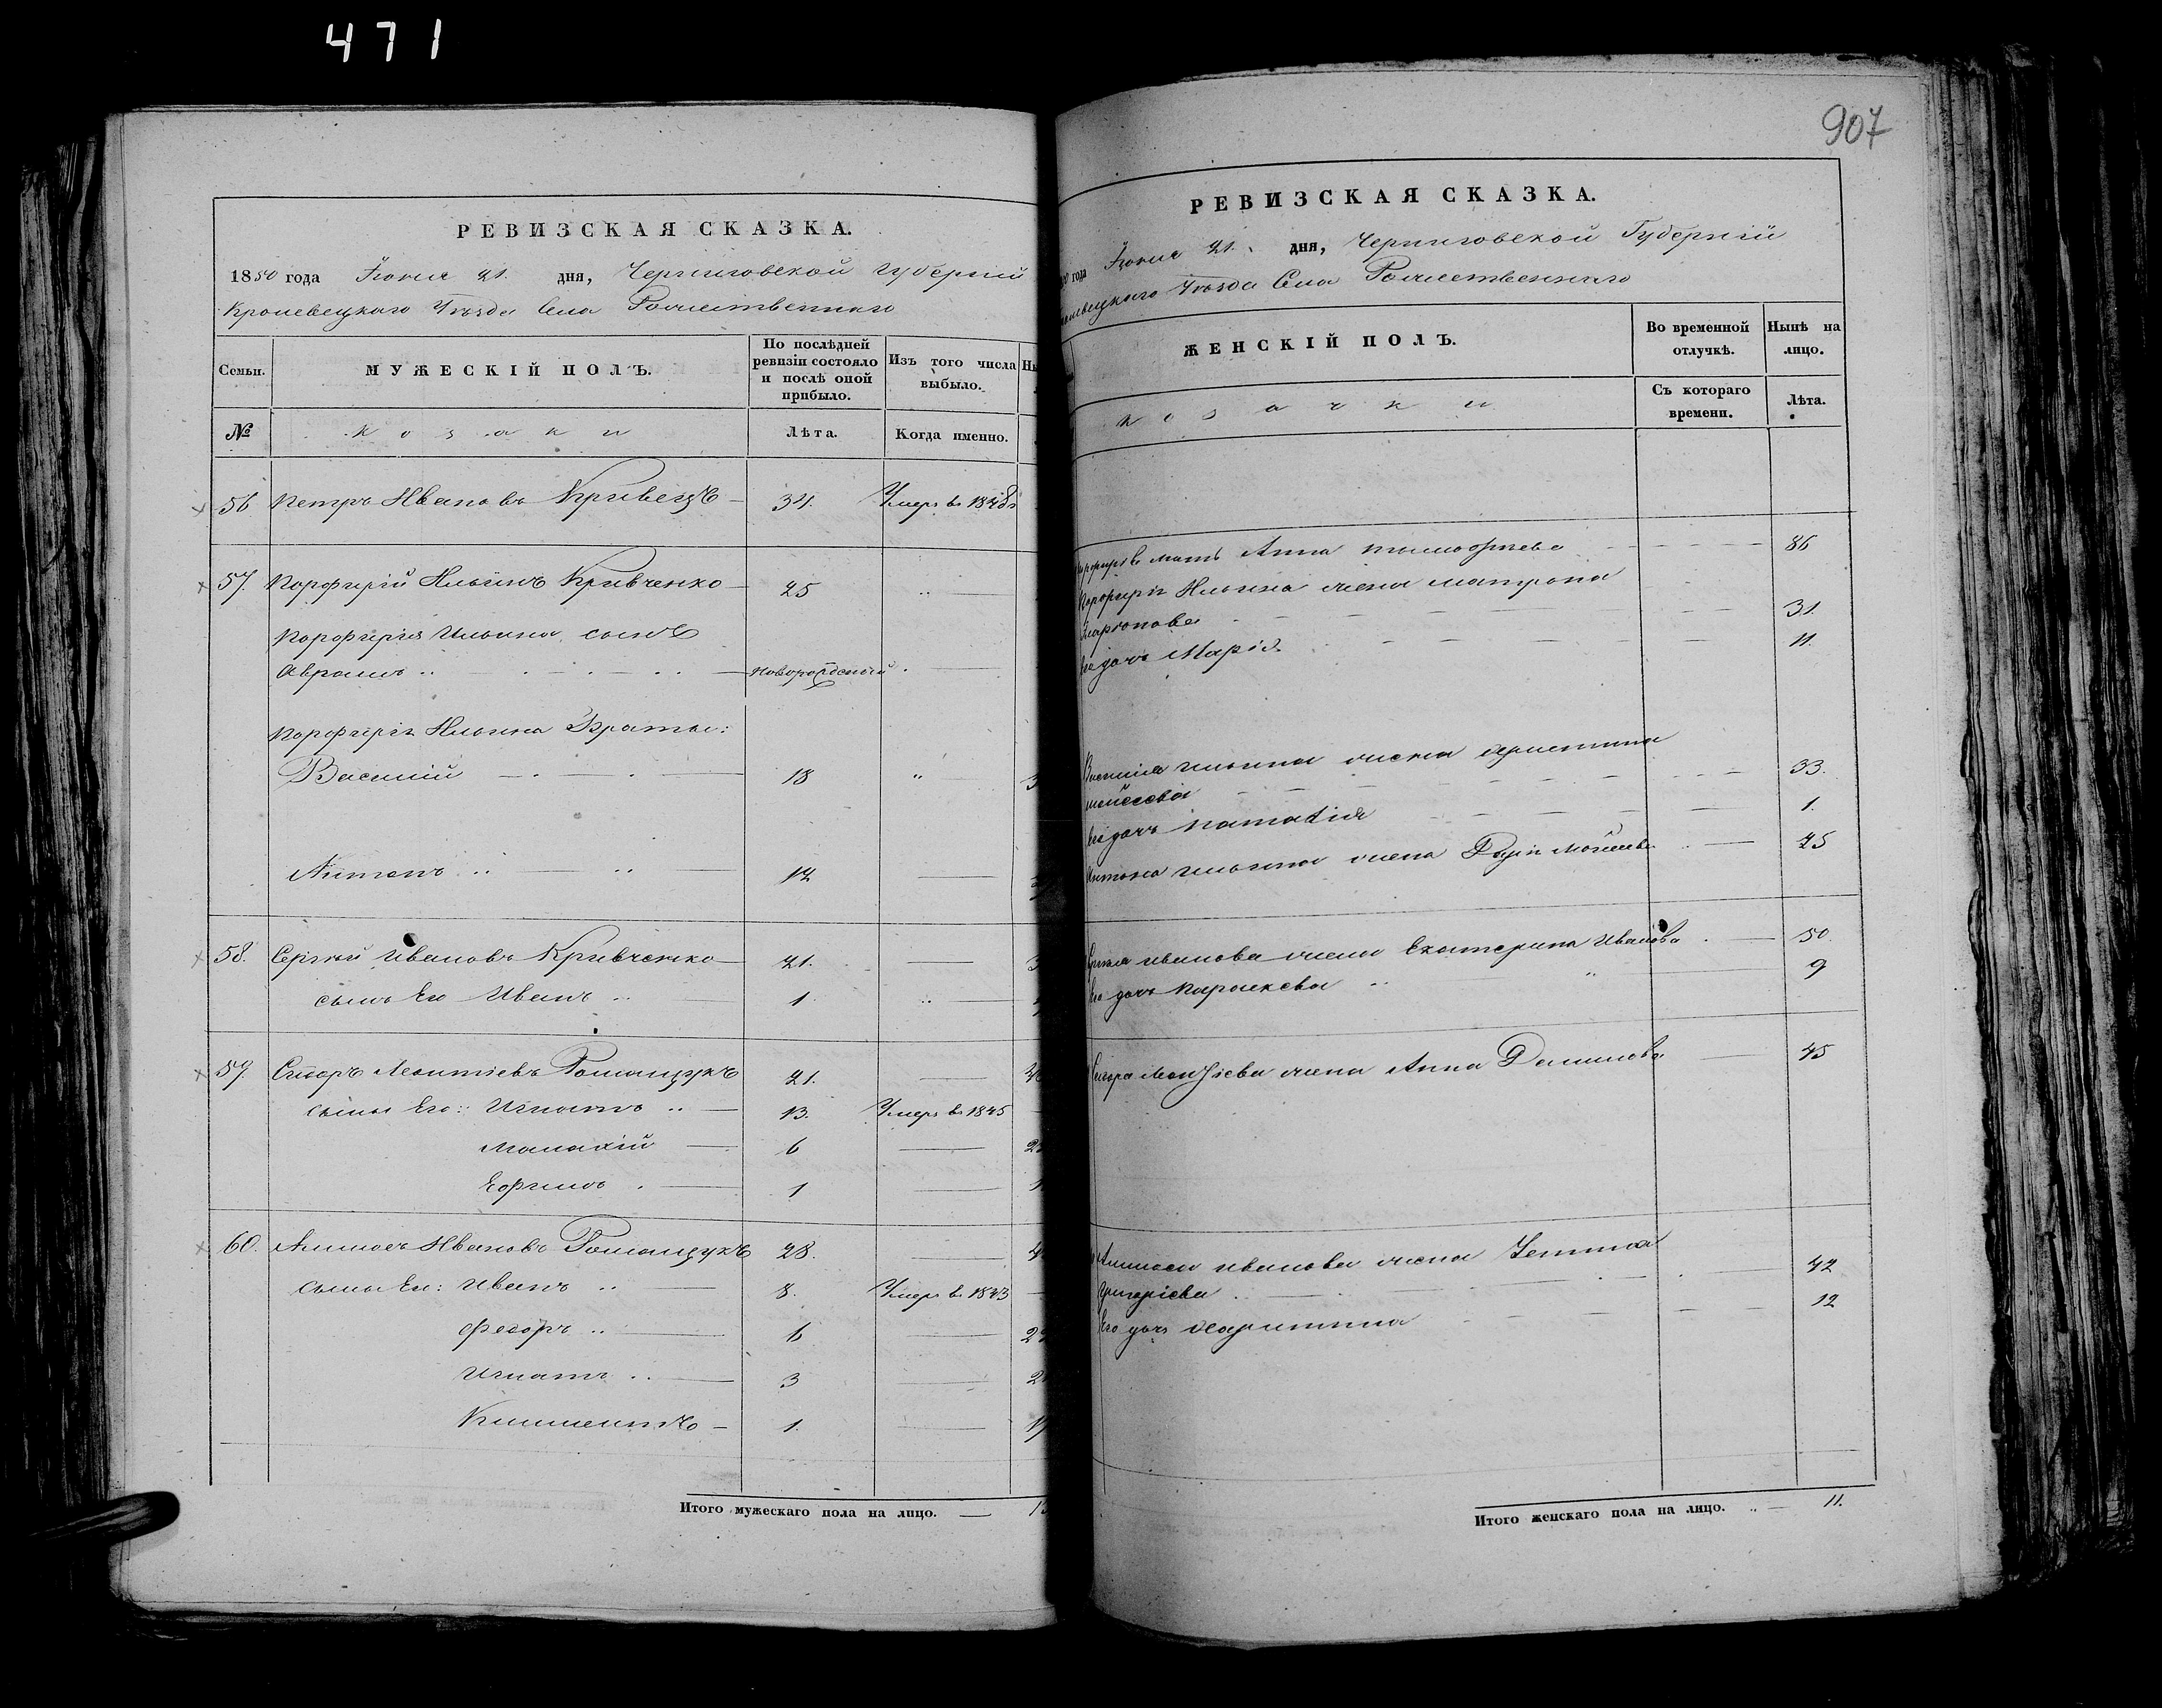 471
907
РЕВИЗСКАЯ СКАЗКА.
1850 года Іюня 21. дня, Черниговской Губерніи
Кролевецкаго Уѣзда Села Рожественнаго
Семьи. МУЖЕСКІЙ ПОЛЪ. По послѣдней ревизіи состояло и послѣ оной прибыло. Изъ того числа выбыло.
№ Козаки Лѣта. Когда именно.
56 Петръ Ивановъ Кривецъ 34. Умеръ въ 1848
57. Порфирій Ильинъ Кривченко 25
Порфирія Ильина сынъ
Аврамъ новорожденный
Порфирія Ильина Братья:
Василій 18
Антонъ 12
58. Сергѣй Ивановъ Кривченко 21.
сынъ Его Иванъ 1.
59. Сидоръ Леонтіевъ Ромащукъ 21.
сыны Его: Игнатъ 13. Умеръ въ 1845
Малахій 6
Ефимъ 1
60. Ивановъ Ромащукъ 28.
сыны Его: Иванъ 8. Умеръ въ 1843
Федоръ 6
Игнатъ 3
Климентъ 1.
Итого мужескаго пола на лицо.
РЕВИЗСКАЯ СКАЗКА.
года Іюня 21. дня, Черниговской Губерніи
Уѣзда Села Рожественнаго
ЖЕНСКІЙ ПОЛЪ. Во временной отлучкѣ. Нынѣ на лицо.
Козачки Съ котораго времени. Лѣта.
мать Анна Тимофѣева 86
Порфирія Ильина жена Матрона
Харитонова 31.
Его дочь Марія 11.
Василія Ильина жена Христина
33.
Его дочь Наталія 1.
Антона Ильина жена 25
Сергѣя Иванова жена Екатерина Иванова 50.
Его дочь Параскева 9
Сидора Леонтіева жена Анна Данилова 45
Иванова жена
Григоріева 42
Его дочь Харитина 12
Итого женскаго пола на лицо. 11.